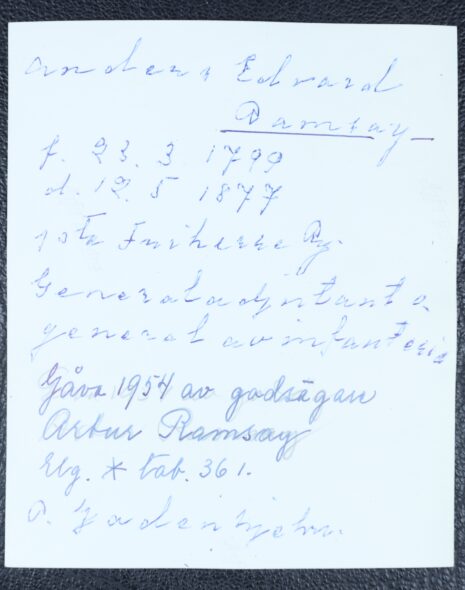 Anders Edvard
Ramsay
f. 23. 3. 1799
d. 12. 5 1877
1sta Friherre Ry.
Generaladjutant o.
general av infanteri
Gåva 1954 av godsägare
Artur Ramsay
Elg. * tab. 361.